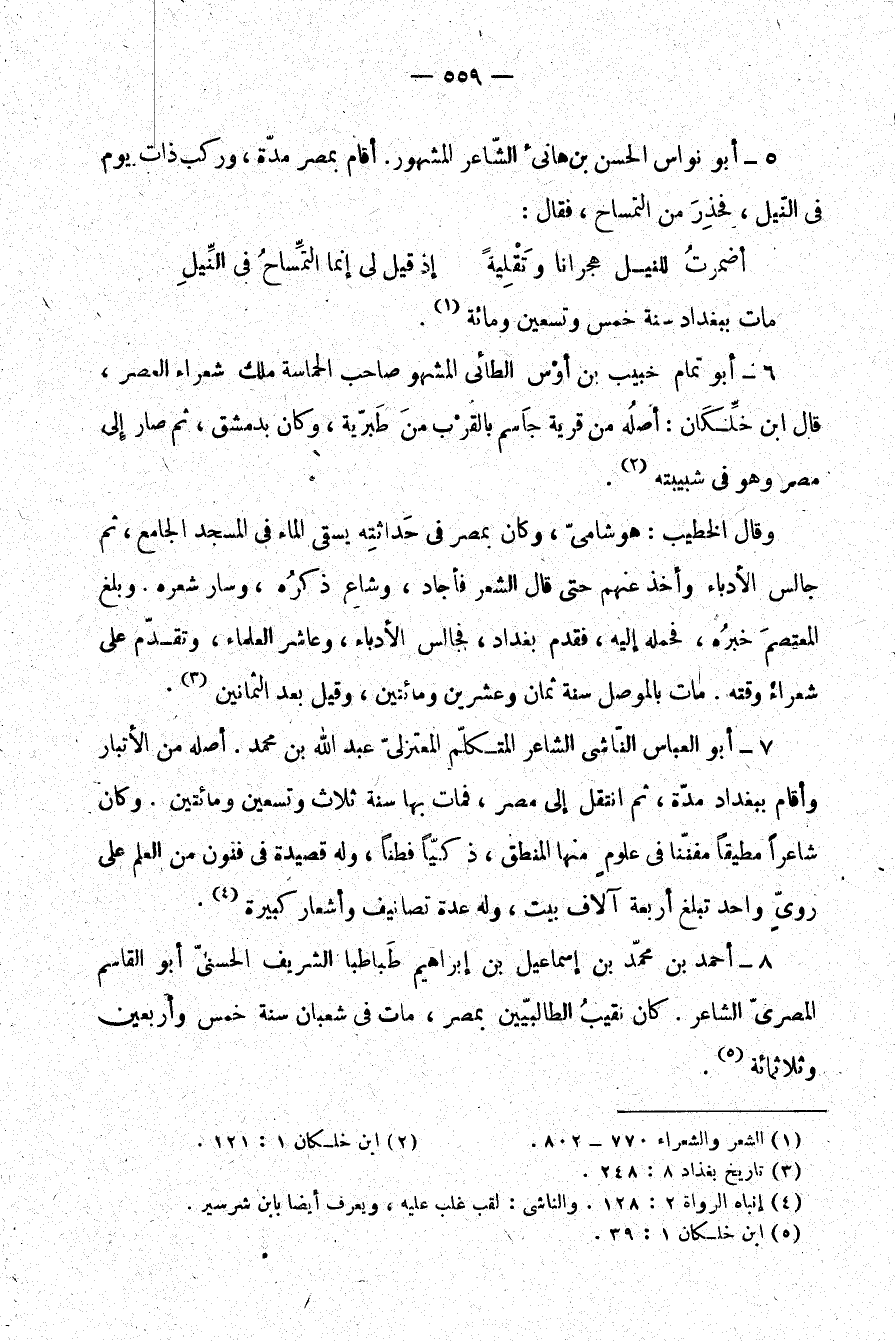 — ٥٥٩ —
٥ – أبو نواس الحسن بن هانىء الشّاعر المشهور. أقام بمصر مدّة ، وركب ذات يوم
فى النّيل ، فحذِرَ من التمساح ، فقال :
أضمرتُ للنيل هجرانا وتَقْلِيةً إذ قيل لى إنما التمِّساحُ فى النِّيلِ
مات ببغداد سنة خمس وتسعين ومائة (١) .
٦ – أبو تمام خبيب بن أوْس الطائى المشهو صاحب الحماسة ملك شعراء العصر ،
قال ابن خلِّكَان : أصلُه من قرية جَاسم بالقرْب منَ طَبرّية ، وكان بدمشق ، ثم صار إلى
مصر وهو فى شبيبته (٢) .
وقال الخطيب : هو شامىّ ، وكان بمصر فى حَداثتِه يسقى الماء فى المسجد الجامع ، ثم
جالس الأدباء وأخذ عنهم حتى قال الشعر فأجاد ، وشاع ذكرُه ، وسار شعره . وبلغ
المعتصمَ خبرُه ، فحمله إليه ، فقدم بغداد ، فجالس الأدباء ، وعاشر العلماء ، وتقدّم على
شعراء وقته . مات بالموصل سنة ثمان وعشرين ومائتين ، وقيل بعد الثمانين (٣) .
٧ – أبو العباس النّاشى الشاعر المتكلّم المعتزلىّ عبد الله بن محمد . أصله من الأتبار
وأقام ببغداد مدّة ، ثم انتقل إلى مصر ، فمات بها سنة ثلاث وتسعين ومائتين . وكان
شاعراً مطيقاً مفنّنا فى علومٍ منها المنطق ، ذكيّاً فطناً ، وله قصيدة فى فنون من العلم على
روىٍّ واحد تبلغ أربعة آلاف بيت ، وله عدة تصانيف وأشعار كبيرة (٤) .
٨ – أحمد بن محمّد بن إسماعيل بن إبراهيم طَباطبا الشريف الحسنىّ أبو القاسم
المصرىّ الشاعر . كان نقيبُ الطالبيّين بمصر ، مات فى شعبان سنة خمس وأربعين
وثلاثمائة (٥) .
(١) الشعر والشعراء ٧٧٠ – ٨٠٢ . (٢) ابن خلكان ١ : ١٢١ .
(٣) تاريخ بغداد ٨ : ٢٤٨ .
(٤) إنباه الرواة ٢ : ١٢٨ . والناشى : لقب غلب عليه ، ويعرف أيضا بابن شرسير .
(٥) ابن خلكان ١ : ٣٩ .